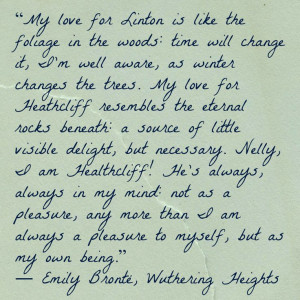 “My love for Linton is like the
foliage in the woods: time will change
it, I'm well aware, as winter
changes the trees. My love for
Heathcliff resembles the eternal
rocks beneath: a source of little
visible delight, but necessary. Nelly,
I am Healthcliff! He's always,
always in my mind: not as a
pleasure, any more than I am
always a pleasure to myself, but as
my own being.”
— Emily Bronte, Wuthering Heights